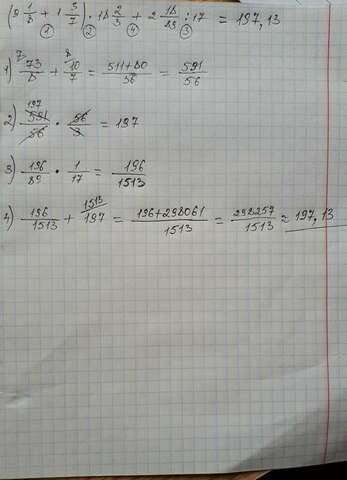 (9 1/8 + 1 3/7) · 18 2/3 + 2 18/89 : 17 = 197,13
① ② ④ ③
1) ⁷⁾73/8 + ⁸⁾10/7 = 511+80/56 = 591/56
2) 197 591/56 · 56/3 = 197
3) 196/89 · 1/17 = 196/1513
4) 196/1513 + ¹⁵¹³⁾197 = 196+298061/1513 = 298257/1513 ≈ 197,13